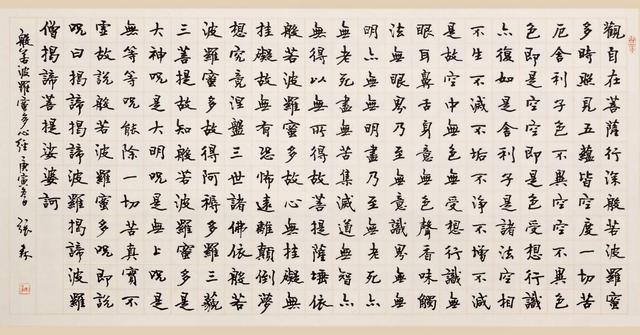 觀自在菩薩行深般若波羅蜜
多時照見五蘊皆空度一切苦
厄舍利子色不異空空不異色
色即是空空即是色受想行識
亦復如是舍利子是諸法空相
不生不滅不垢不淨不增不減
是故空中無色無受想行識無
眼耳鼻舌身意無色聲香味觸
法無眼界乃至無意識界無無
明亦無無明盡乃至無老死亦
無老死盡無苦集滅道無智亦
無得以無所得故菩提薩埵依
般若波羅蜜多故心無掛礙無
掛礙故無有恐怖遠離顛倒夢
想究竟涅槃三世諸佛依般若
波羅蜜多故得阿耨多羅三藐
三菩提故知般若波羅蜜多是
大神咒是大明咒是無上咒是
無等等咒能除一切苦真實不
虛故說般若波羅蜜多咒即說
咒曰揭諦揭諦波羅揭諦波羅
僧揭諦菩提娑婆訶
般若波羅蜜多心經 庚寅 日 張